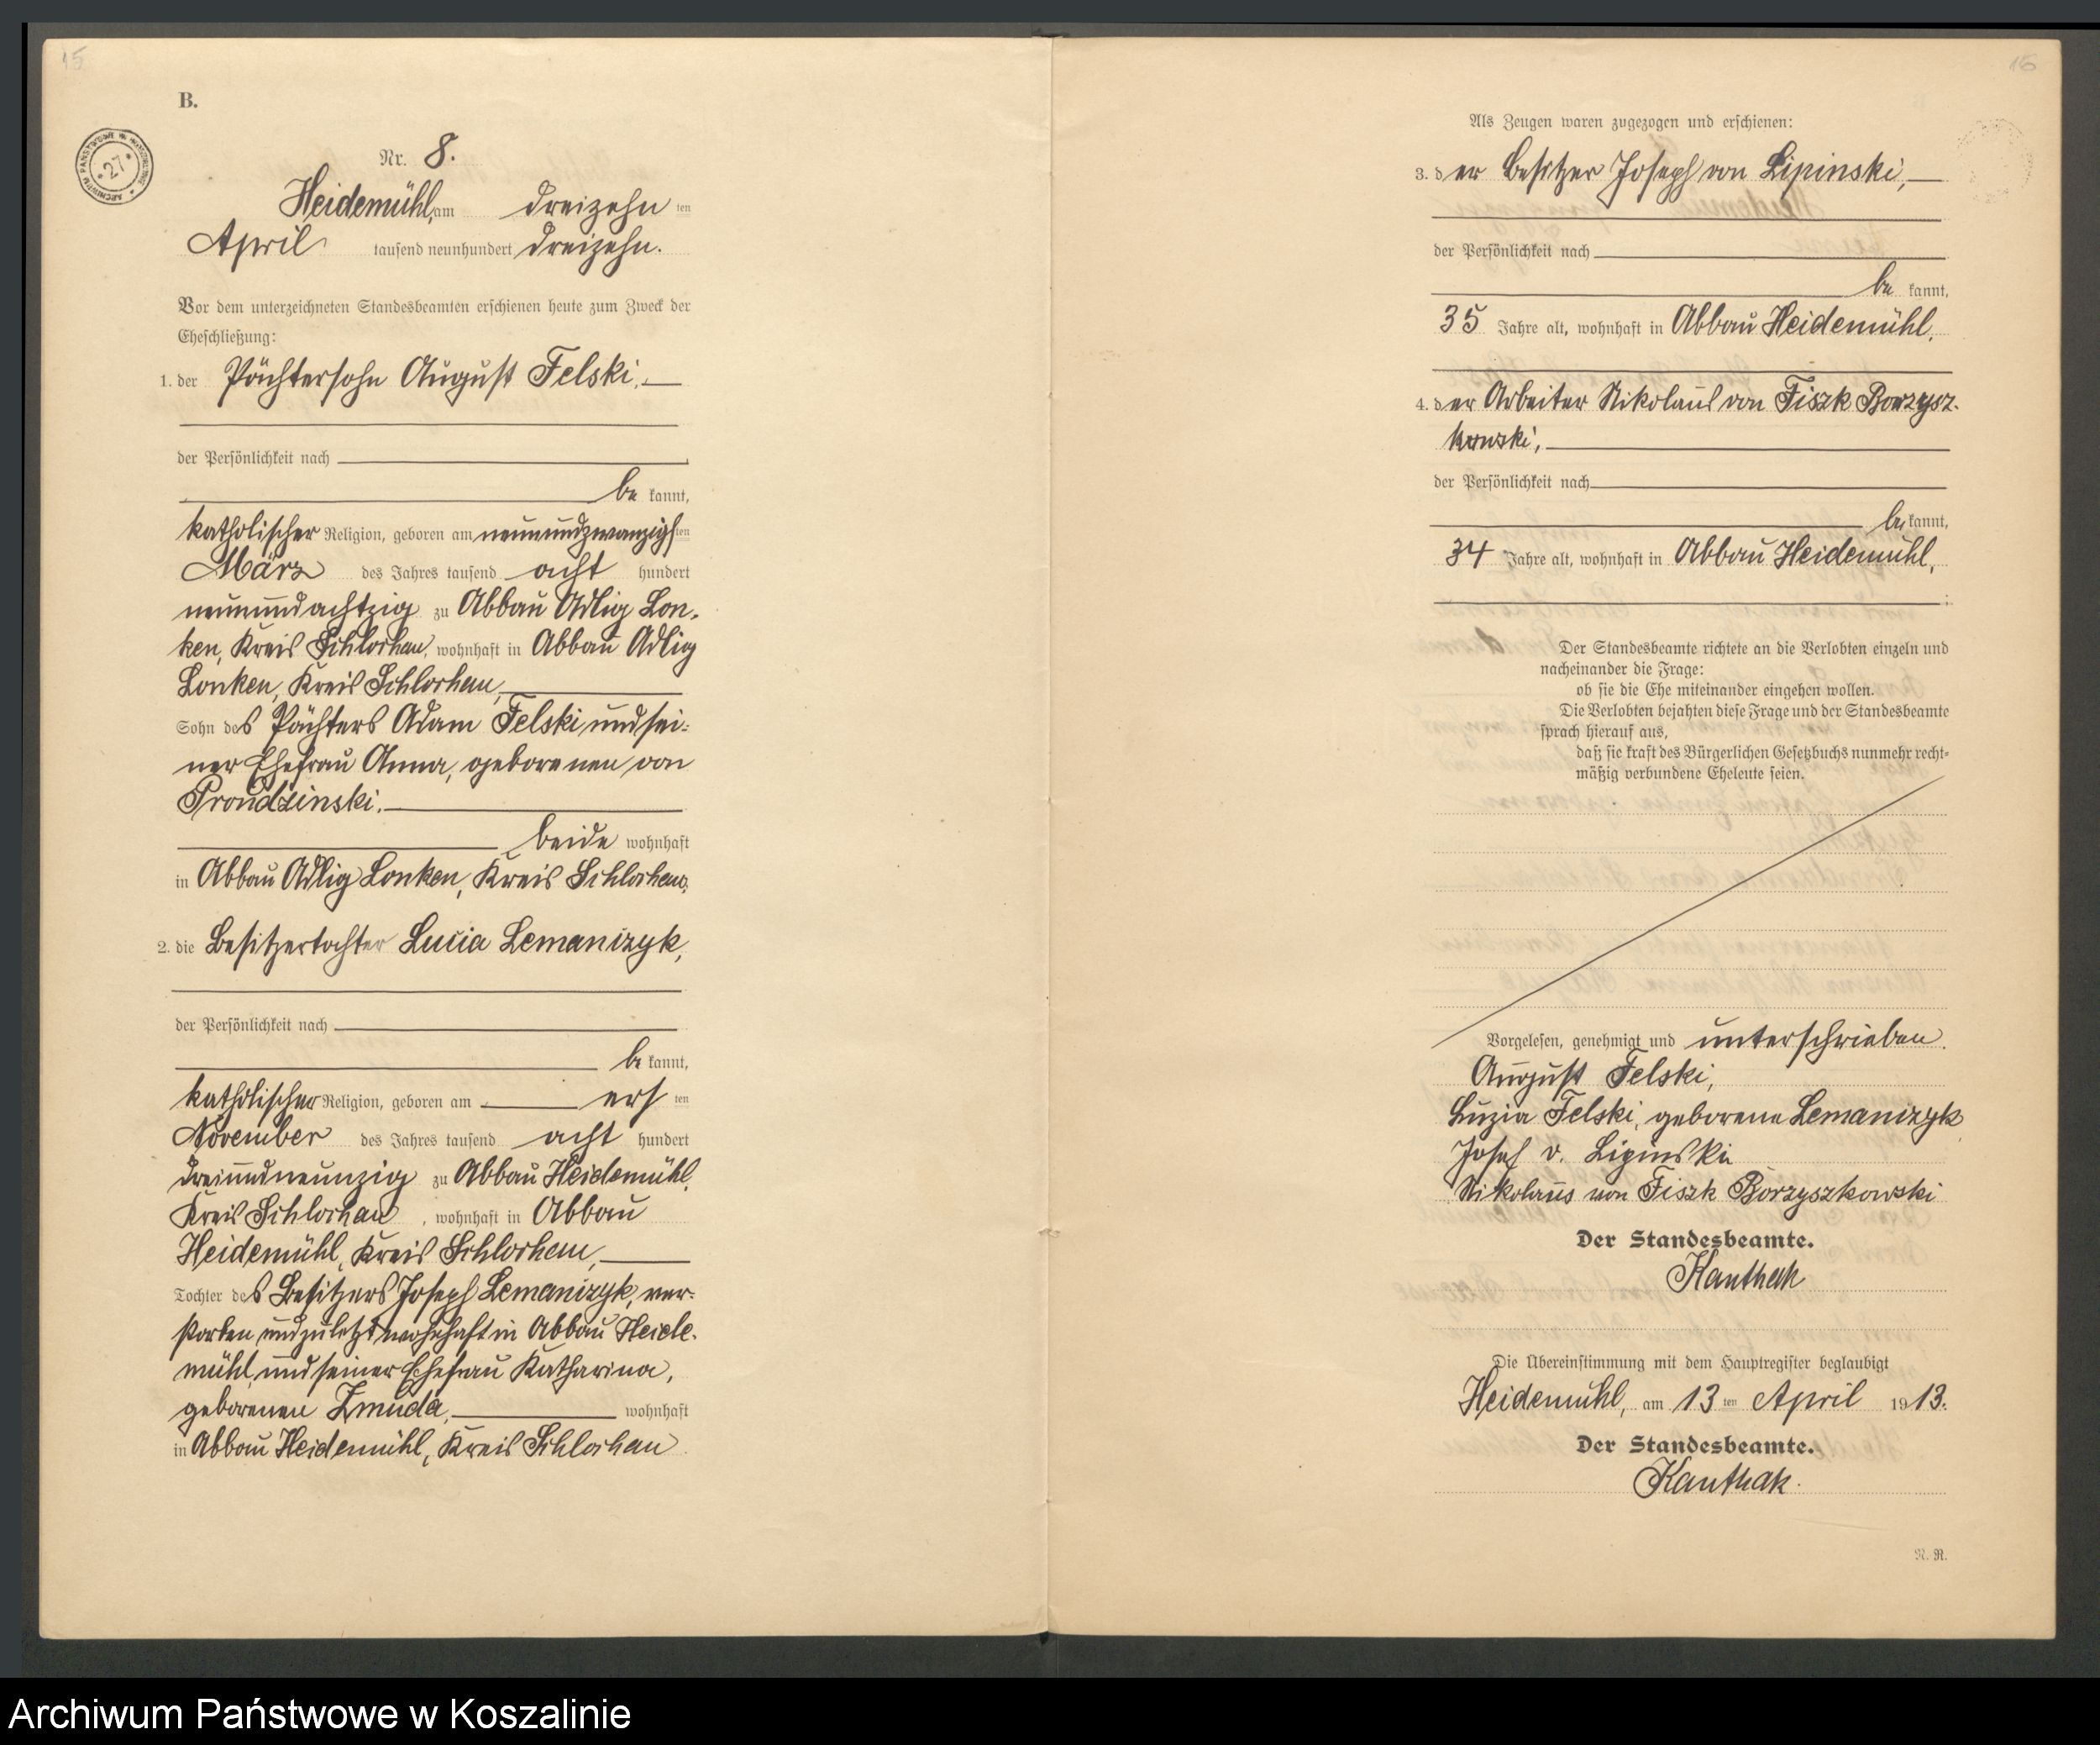 15
B.
ARCHIWUM PAŃSTWOWE W KOSZALINIE * 27 *
Nr. 8.
Heidemühl, am dreizehnten
April tausend neunhundert dreizehn.
Vor dem unterzeichneten Standesbeamten erschienen heute zum Zweck der
Eheschließung:
1. der Pächtersohn August Felski,
der Persönlichkeit nach
bekannt,
katholischer Religion, geboren am neunundzwanzigsten
März des Jahres tausend acht hundert
neunundachtzig zu Abbau Adlig Lon-
ken, Kreis Schlochau, wohnhaft in Abbau Adlig
Lonken, Kreis Schlochau,
Sohn des Pächters Adam Felski und sei-
ner Ehefrau Anna, geborenen von
Prondzinski.
beide wohnhaft
in Abbau Adlig Lonken, Kreis Schlochau.
2. die Besitzertochter Lucia Lemanczyk,
der Persönlichkeit nach
bekannt,
katholischer Religion, geboren am ersten
November des Jahres tausend acht hundert
dreiundneunzig zu Abbau Heidemühl,
Kreis Schlochau, wohnhaft in Abbau
Heidemühl, Kreis Schlochau,
Tochter des Besitzers Joseph Lemanczyk, ver-
storben und zuletzt wohnhaft in Abbau Heide-
mühl und seiner Ehefrau Katharina,
geborenen Zmuda, wohnhaft
in Abbau Heidemühl, Kreis Schlochau
16
Als Zeugen waren zugezogen und erschienen:
3. der Besitzer Joseph von Lipinski,
der Persönlichkeit nach
bekannt,
35 Jahre alt, wohnhaft in Abbau Heidemühl,
4. der Arbeiter Nikolaus von Fiszk Borzysz-
kowski,
der Persönlichkeit nach
bekannt,
34 Jahre alt, wohnhaft in Abbau Heidemühl,
Der Standesbeamte richtete an die Verlobten einzeln und
nacheinander die Frage:
ob sie die Ehe miteinander eingehen wollen.
Die Verlobten bejahten diese Frage und der Standesbeamte
sprach hierauf aus,
daß sie kraft des Bürgerlichen Gesetzbuchs nunmehr recht-
mäßig verbundene Eheleute seien.
Vorgelesen, genehmigt und unterschrieben.
August Felski,
Luzia Felski, geborene Lemanczyk
Josef v. Lipinski
Nikolaus von Fiszk Borzyszkowski
Der Standesbeamte.
Kanthak
Die Übereinstimmung mit dem Hauptregister beglaubigt
Heidemühl, am 13ten April 1913.
Der Standesbeamte.
Kanthak.
N. R.
Archiwum Państwowe w Koszalinie